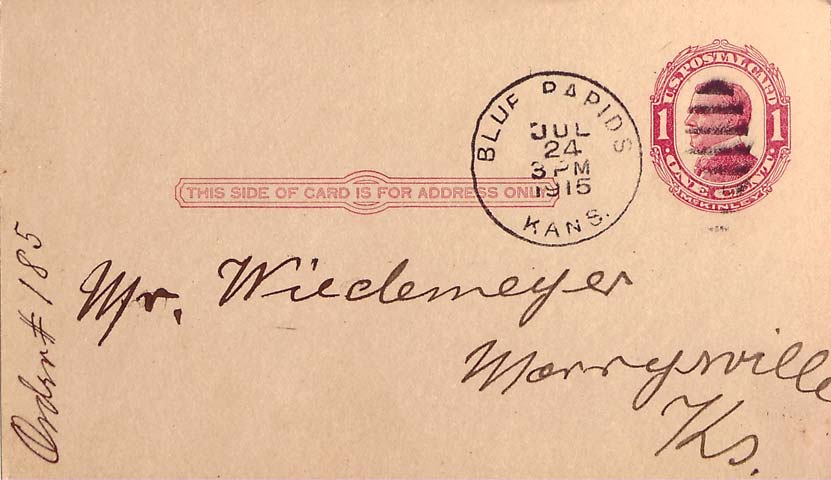 U.S. POSTAL CARD
1 1
ONE CENT
McKINLEY
BLUE RAPIDS
JUL
24
3 PM
1915
KANS.
THIS SIDE OF CARD IS FOR ADDRESS ONLY
Mr. Wiedemeyer
Marrysville
Ks.
Order # 185